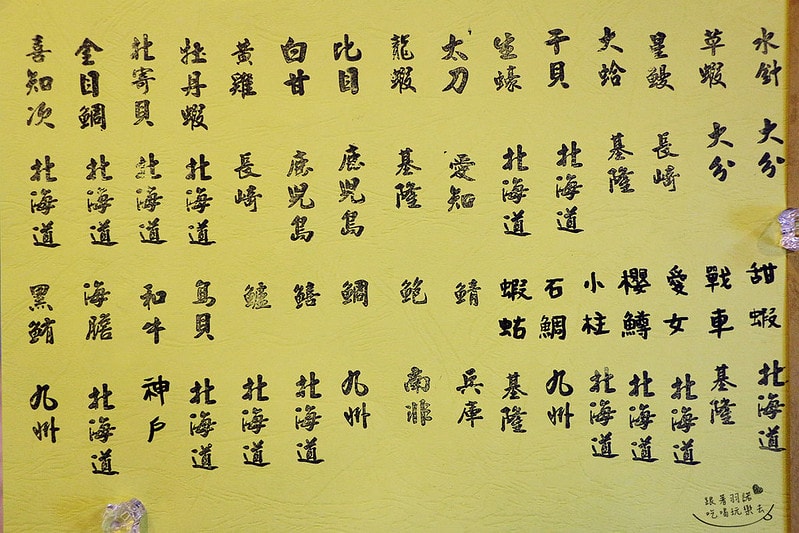 水針 大分
草蝦 大分
星鰻 長崎
大蛤 基隆
干貝 北海道
生蠔 北海道
太刀 愛知
龍蝦 基隆
比目 鹿児島
白甘 鹿児島
黃雞 長崎
牡丹蝦 北海道
北寄貝 北海道
金目鯛 北海道
喜知次 北海道
甜蝦 北海道
戰車 基隆
愛女 北海道
櫻鱒 北海道
小柱 北海道
石鯛 九州
蝦蛄 基隆
鯖 兵庫
鮑 南非
鯛 九州
北海道
鱸 北海道
鳥貝 北海道
和牛 神戶
海膽 北海道
黑鮪 九州
跟著羽諾
吃喝玩樂去